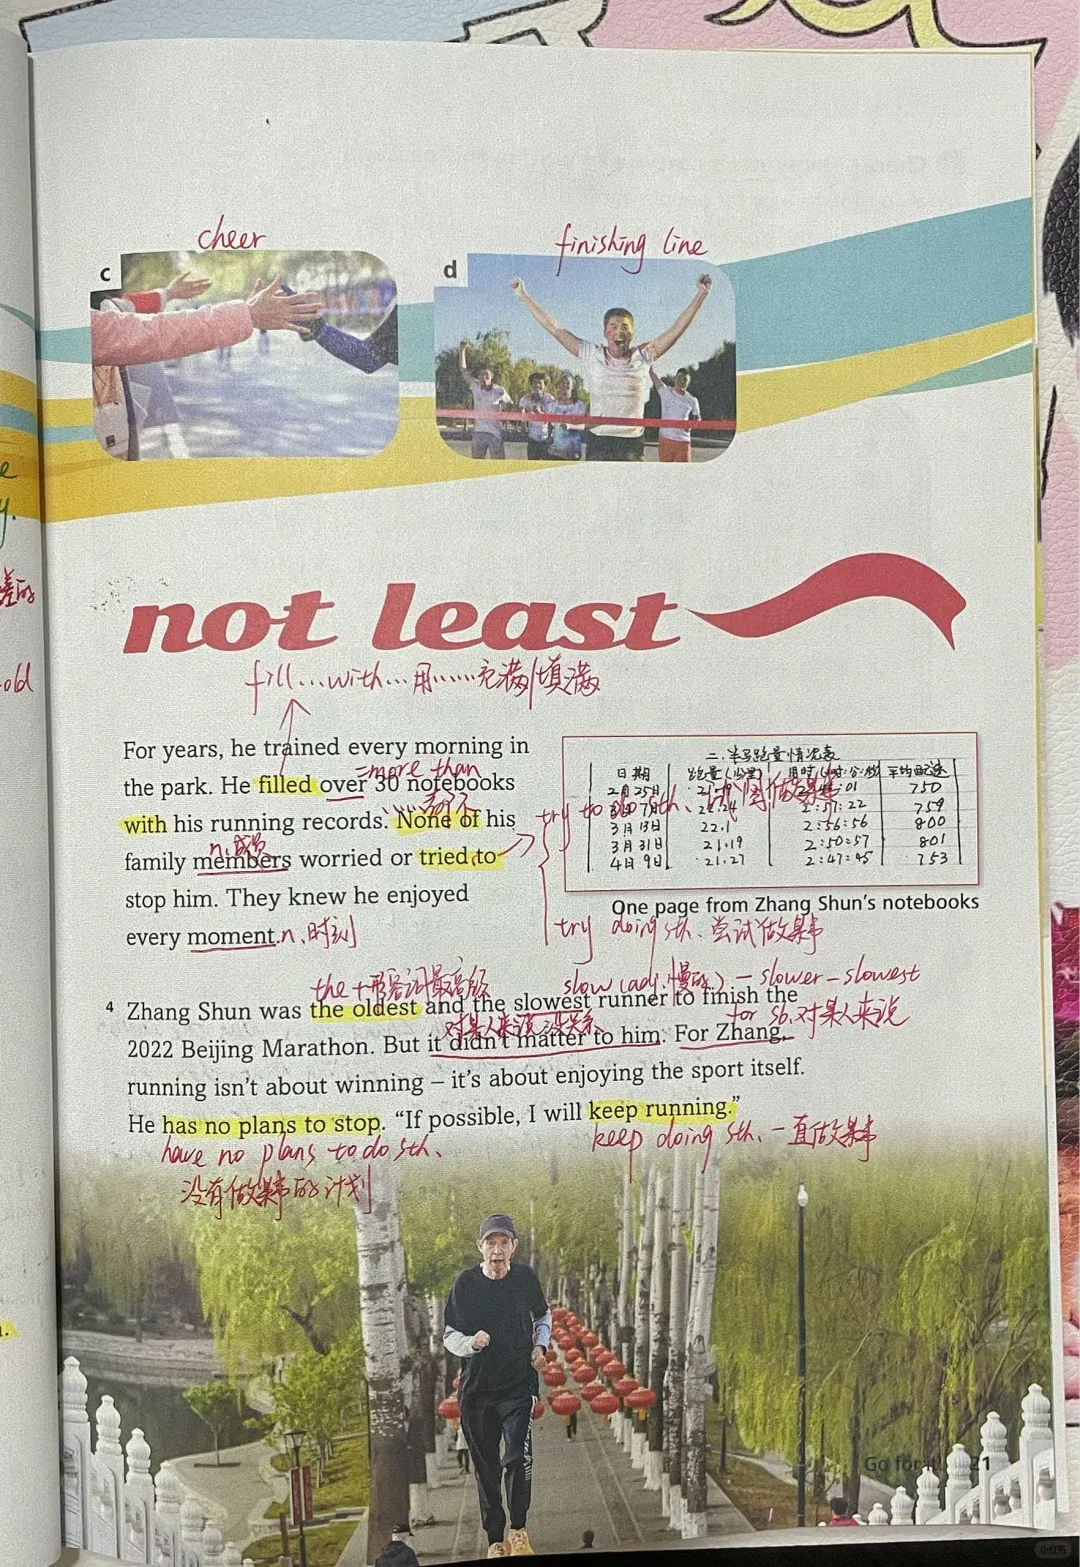 cheer
finishing line
c
d
not least
fill...with...用......充满/填满
For years, he trained every morning in
=more than
the park. He filled over 30 notebooks
with his running records. None of his
n.成员
family members worried or tried to
stop him. They knew he enjoyed
every moment. n.时刻
try to do sth. 试图做某事
try doing sth. 尝试做某事
二.半马跑量情况表
日期 跑量(公里) 用时(时:分:秒) 平均配速
2月25日 :01 750
3月7日 22.24 2:57:22 759
3月13日 22.1 2:56:56 800
3月31日 21.19 2:50:57 801
4月9日 21.27 2:47:45 753
One page from Zhang Shun's notebooks
the+形容词最高级
slow(adj.慢的)-slower-slowest
4 Zhang Shun was the oldest and the slowest runner to finish the
对某人来说没关系
for sb.对某人来说
2022 Beijing Marathon. But it didn't matter to him. For Zhang,
running isn't about winning – it's about enjoying the sport itself.
He has no plans to stop. "If possible, I will keep running."
have no plans to do sth.
没有做某事的计划
keep doing sth. 一直做某事
Go for it! 21
差的
old
小红书